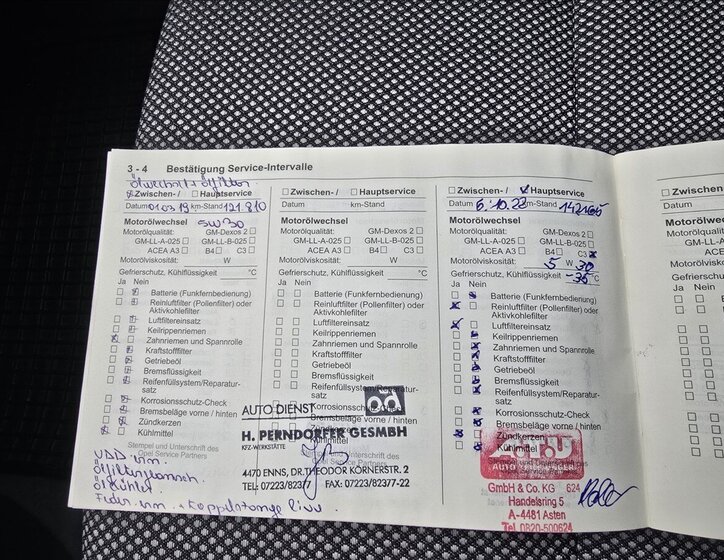 3 - 4 Bestätigung Service-Intervalle
Ölwechsel + Ölfilter
Zwischen- / Hauptservice
Datum 01.03.19 km-Stand 121.810
Motorölwechsel 5W30
Motorölqualität: GM-Dexos 2
GM-LL-A-025 GM-LL-B-025
ACEA A3 B4 C3
Motorölviskosität: W
Gefrierschutz, Kühlflüssigkeit °C
Ja Nein
Batterie (Funkfernbedienung)
Reinluftfilter (Pollenfilter) oder
Aktivkohlefilter
Luftfiltereinsatz
Keilrippenriemen
Zahnriemen und Spannrolle
Kraftstofffilter
Getriebeöl
Bremsflüssigkeit
Reifenfüllsystem/Reparatur-
satz
Korrosionsschutz-Check
Bremsbeläge vorne / hinten
Zündkerzen
Kühlmittel
Stempel und Unterschrift des
Opel Service Partners
VDD ern.
Ölkühler
Zwischen- / Hauptservice
Datum km-Stand
Motorölwechsel
Motorölqualität: GM-Dexos 2
GM-LL-A-025 GM-LL-B-025
ACEA A3 B4 C3
Motorölviskosität: W
Gefrierschutz, Kühlflüssigkeit °C
Ja Nein
Batterie (Funkfernbedienung)
Reinluftfilter (Pollenfilter) oder
Aktivkohlefilter
Luftfiltereinsatz
Keilrippenriemen
Zahnriemen und Spannrolle
Kraftstofffilter
Getriebeöl
Bremsflüssigkeit
Reifenfüllsystem/Reparatur-
satz
Korrosionsschutz-Check
Bremsbeläge vorne / hinten
Zündkerzen
Kühlmittel
AUTO DIENST ad
H. PERNDORFER GESMBH
KFZ-WERKSTÄTTE
4470 ENNS, DR. THEODOR KÖRNERSTR. 2
TEL: 07223/82377 FAX: 07223/82377-22
Zwischen- / Hauptservice
Datum 6.10.22 km-Stand
Motorölwechsel
Motorölqualität: GM-Dexos 2
GM-LL-A-025 GM-LL-B-025
ACEA A3 B4 C3
Motorölviskosität: 5 W 30
Gefrierschutz, Kühlflüssigkeit -35 °C
Ja Nein
Batterie (Funkfernbedienung)
Reinluftfilter (Pollenfilter) oder
Aktivkohlefilter
Luftfiltereinsatz
Keilrippenriemen
Zahnriemen und Spannrolle
Kraftstofffilter
Getriebeöl
Bremsflüssigkeit
Reifenfüllsystem/Reparatur-
satz
Korrosionsschutz-Check
Bremsbeläge vorne / hinten
Zündkerzen
Kühlmittel
GmbH & Co. KG 624
Handelsring 5
A-4481 Asten
Tel. 0820-500624
Zwischen-
Datum
Motorölwechsel
Motorölqualität:
GM-LL-A
ACE
Motorölviskosität
Gefrierschutz, K
Ja Nein